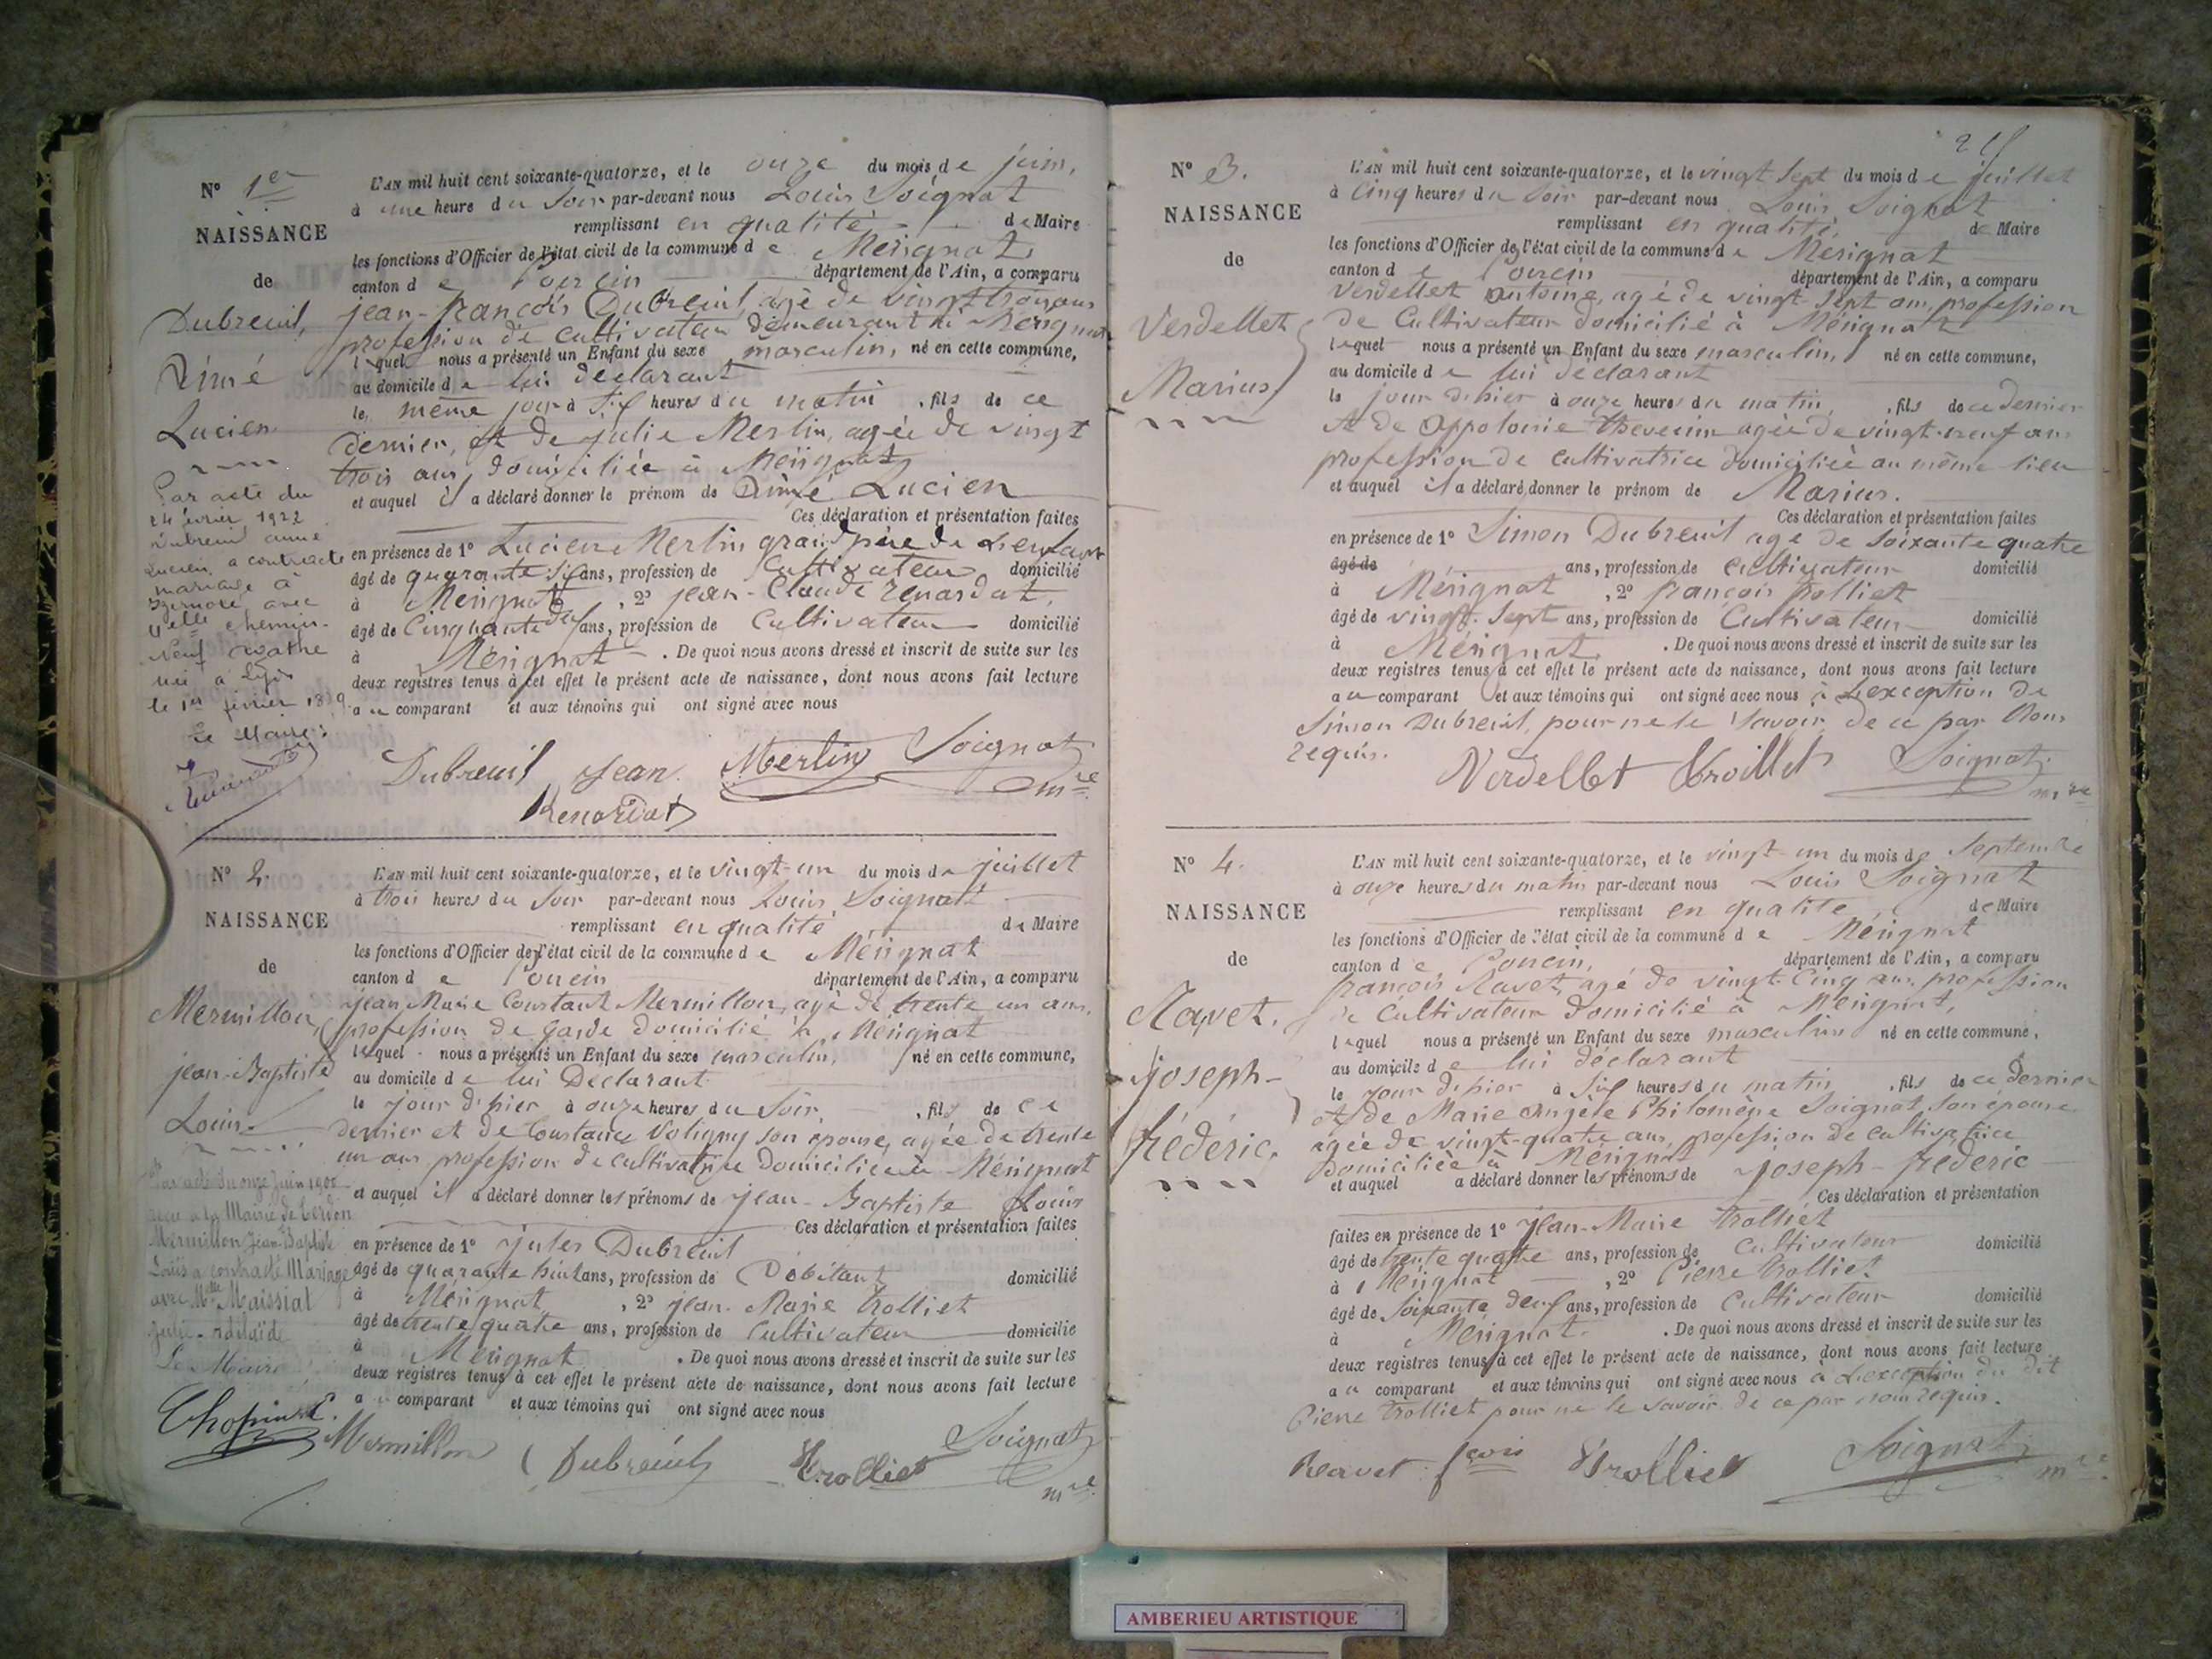 Nº 1er
NAISSANCE
de
Dubreuil,
Aimé
Lucien
Par acte du
24 février 1922
Dubreuil aimé
Lucien, a contracté
mariage à
Izernore, avec
Melle Chemin-
Neuf
née à Lyon
le 1er février 18
Le Maire
L'AN mil huit cent soixante-quatorze, et le onze du mois de juin,
à une heure du soir par-devant nous Louis Soignat
remplissant en qualité de Maire
les fonctions d'Officier de l'état civil de la commune de Mérignat
canton de Poncin département de l'Ain, a comparu
jean-françois Dubreuil, agé de vingt trois ans
profession de cultivateur demeurant à Mérignat
lequel nous a présenté un Enfant du sexe masculin, né en cette commune,
au domicile de lui déclarant
le même jour à six heures du matin, fils de ce
dernier, et de julie Merlin, agée de vingt
trois ans, domiciliée à Mérignat
et auquel il a déclaré donner le prénom de Aimé Lucien
Ces déclaration et présentation faites
en présence de 1º Lucien Merlin grand père de L'enfant
âgé de quarante six ans, profession de Cultivateur domicilié
à Mérignat, 2º jean-Claude Renardat,
âgé de Cinquante deux ans, profession de Cultivateur domicilié
à Mérignat. De quoi nous avons dressé et inscrit de suite sur les
deux registres tenus à cet effet le présent acte de naissance, dont nous avons fait lecture
au comparant et aux témoins qui ont signé avec nous
Dubreuil Jean Merlin Soignat
mre
Renardat
Nº 2.
NAISSANCE
de
Mermillon,
jean-Baptiste
Louis
Par acte du onze juin 1900
reçu à la Mairie de Cerdon
Mermillon Jean-Baptiste
Louis a contracté Mariage
avec Melle Maissiat
Julie-Adélaïde
Le Maire
L'AN mil huit cent soixante-quatorze, et le vingt-un du mois de juillet
à trois heures du soir par-devant nous Louis Soignat
remplissant en qualité de Maire
les fonctions d'Officier de l'état civil de la commune de Mérignat
canton de Poncin département de l'Ain, a comparu
jean Marie Constant Mermillon, agé de trente un ans,
profession de garde domicilié à Mérignat
lequel nous a présenté un Enfant du sexe masculin, né en cette commune,
au domicile de lui Déclarant
le jour d'hier à onze heures du soir, fils de ce
dernier et de Constance Voligny son épouse, agée de trente
un ans profession de cultivatrice domiciliée à Mérignat
et auquel il a déclaré donner les prénoms de jean-Baptiste Louis
Ces déclaration et présentation faites
en présence de 1º jules Dubreuil
âgé de quarante huit ans, profession de Débitant domicilié
à Mérignat, 2º jean-Marie trolliet
âgé de trente quatre ans, profession de Cultivateur domicilié
à Mérignat. De quoi nous avons dressé et inscrit de suite sur les
deux registres tenus à cet effet le présent acte de naissance, dont nous avons fait lecture
au comparant et aux témoins qui ont signé avec nous
Mermillon Dubreuil Trolliet Soignat
mre
Nº 3.
NAISSANCE
de
Verdellet
Marius
L'AN mil huit cent soixante-quatorze, et le vingt sept du mois de juillet
à Cinq heures du soir par-devant nous Louis Soignat
remplissant en qualité de Maire
les fonctions d'Officier de l'état civil de la commune de Mérignat
canton de Poncin département de l'Ain, a comparu
Verdellet Antoine, agé de vingt-sept ans, profession
de Cultivateur domicilié à Mérignat
lequel nous a présenté un Enfant du sexe masculin, né en cette commune,
au domicile de lui déclarant
le jour d'hier à onze heures du matin, fils de ce dernier
et de Appolonie thevenin agée de vingt-neuf ans
profession de cultivatrice domiciliée au même lieu
et auquel il a déclaré donner le prénom de Marius.
Ces déclaration et présentation faites
en présence de 1º Simon Dubreuil agé de soixante quatre
âgé de ans, profession de Cultivateur domicilié
à Mérignat, 2º françois trolliet
âgé de vingt-sept ans, profession de Cultivateur domicilié
à Mérignat. De quoi nous avons dressé et inscrit de suite sur les
deux registres tenus à cet effet le présent acte de naissance, dont nous avons fait lecture
au comparant et aux témoins qui ont signé avec nous à L'exception de
Simon Dubreuil, pour ne le savoir, de ce par nous
requis.
Verdellet Trolliet Soignat
mre
Nº 4.
NAISSANCE
de
Ravet.
joseph-
frédéric.
L'AN mil huit cent soixante-quatorze, et le vingt-un du mois de Septembre
à onze heures du matin par-devant nous Louis Soignat
remplissant en qualité, de Maire
les fonctions d'Officier de l'état civil de la commune de Mérignat
canton de Poncin, département de l'Ain, a comparu
françois Ravet, agé de vingt-Cinq ans, profession
de Cultivateur domicilié à Mérignat,
lequel nous a présenté un Enfant du sexe masculin né en cette commune,
au domicile de lui déclarant
le jour d'hier à six heures du matin, fils de ce dernier
et de Marie Angèle Philomène Soignat, son épouse
agée de vingt-quatre ans, profession de cultivatrice
domiciliée à Mérignat
et auquel a déclaré donner les prénoms de joseph-frédéric
Ces déclaration et présentation
faites en présence de 1º jean-Marie trolliet
âgé de trente quatre ans, profession de Cultivateur domicilié
à Mérignat, 2º Pierre trolliet
âgé de soixante deux ans, profession de Cultivateur domicilié
à Mérignat. De quoi nous avons dressé et inscrit de suite sur les
deux registres tenus à cet effet le présent acte de naissance, dont nous avons fait lecture
au comparant et aux témoins qui ont signé avec nous à L'exception du dit
Pierre trolliet pour ne le savoir de ce par nous requis.
Ravet fçois Trolliet Soignat
mre
AMBERIEU ARTISTIQUE